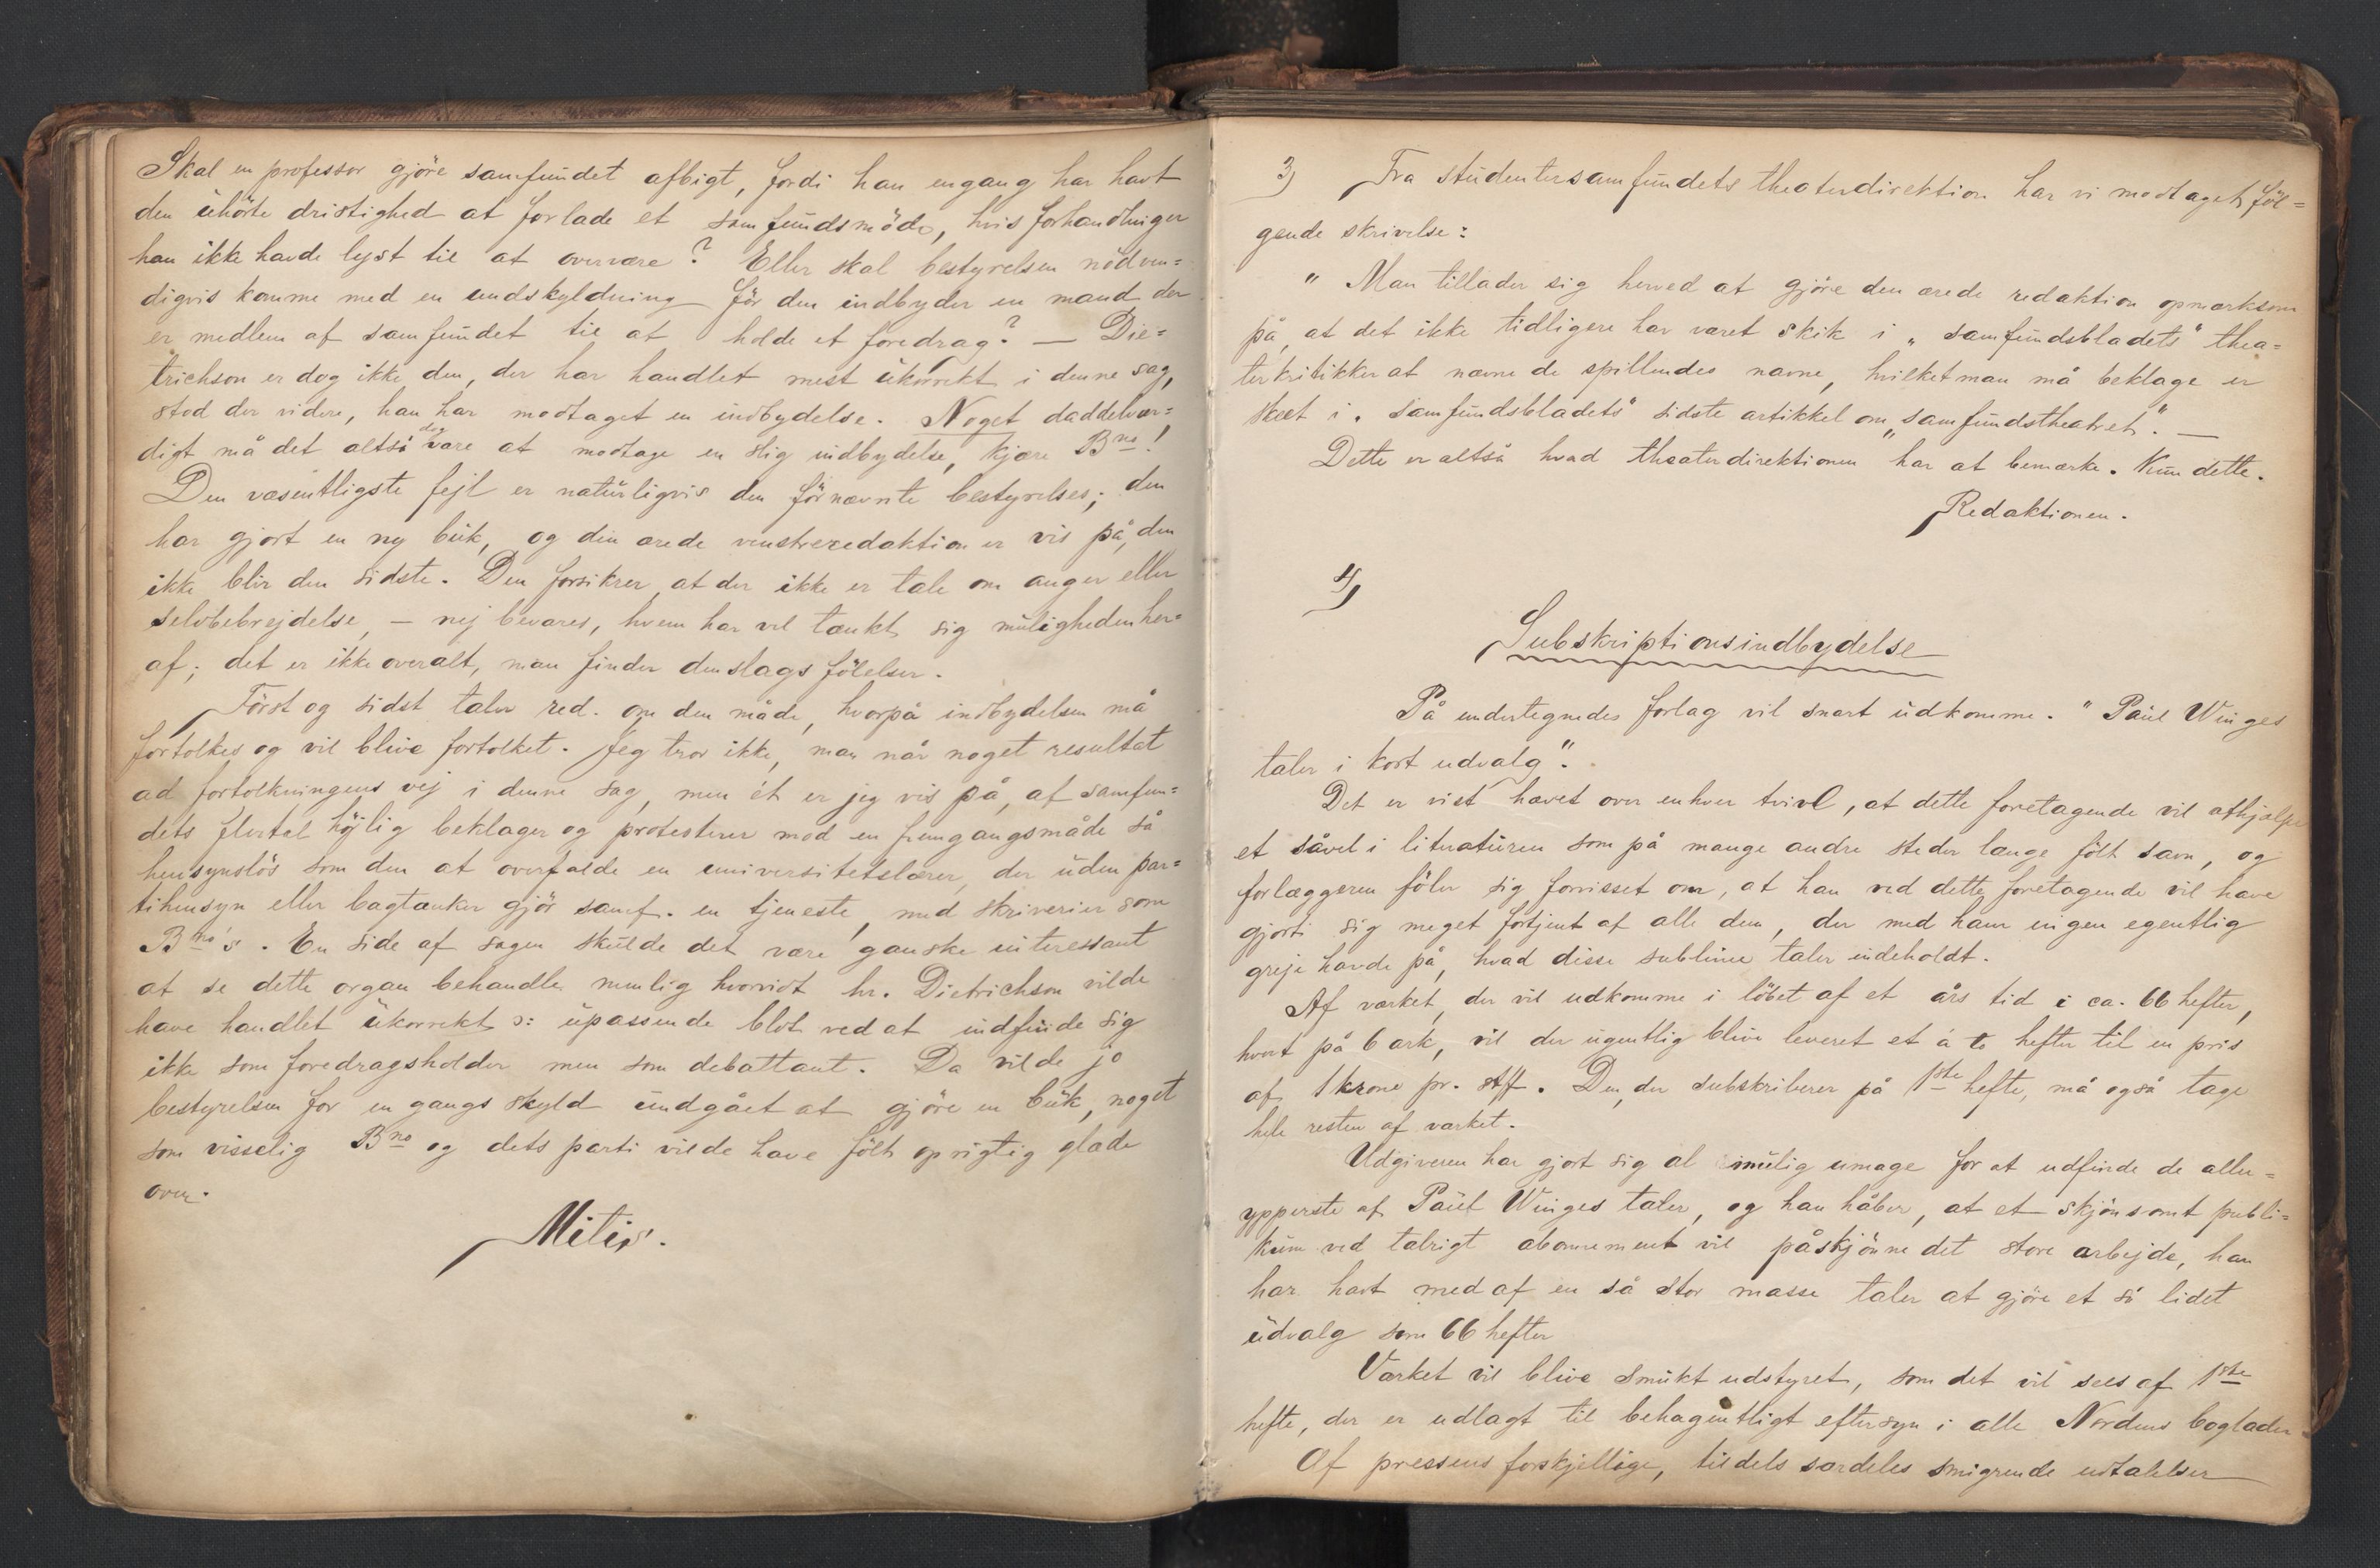 Skal en professor gjöre samfundet afbigt, fordi han engang har havt
den uhörte dristighed at forlade et samfundsmöde, hvis forhandlinger
han ikke havde lyst til at overvære? Eller skal bestyrelsen nödven=
digvis komme med en undskyldning för den indbyder en mand der
er medlem af samfundet til at holde et foredrag? — Die=
trichson er dog ikke den, der har handlet mest ukorrekt i denne sag,
stod der videre, han har modtaget en indbydelse. Noget daddelvær=
digt må det altså dog være at modtage en slig indbydelse, kjære Bno!
Den væsentligste fejl er naturligvis den förnævnte bestyrelses; den
har gjort en ny buk, og din ærede venstreredaktion er vis på, den
ikke blir den sidste. Den forsikrer, at der ikke er tale om anger eller
selvbebrejdelse, — nej bevares, hvem har vel tænkt sig muligheden her=
af; det er ikke overalt, man finder denslags fölelser.
Först og sidst taler red. om den måde, hvorpå indbydelsen må
fortolkes og vil blive fortolket. Jeg tror ikke, man når noget resultat
ad fortolkningens vej i denne sag, men ét er jeg vis på, at samfun=
dets flertal höjlig beklager og protesterer mod en fremgangsmåde så
hensynslös som den at overfalde en universitetslærer, der uden par=
tihensyn eller bagtanker gjör samf. en tjeneste, med skriverier som
Bno's. En side af sagen skulde det være ganske interessant
at se dette organ behandle, nemlig hvorvidt hr. Dietrichson vilde
have handlet ukorrekt ɔ: upassende blot ved at indfinde sig
ikke som foredragsholder men som debattant. Da vilde jo
bestyrelsen for en gangs skyld undgået at gjöre en buk, noget
som visselig Bno og dets parti vilde have fölt oprigtig glæde
over.
Mitis.
3) Fra studentersamfundets theaterdirektion har vi modtaget föl=
gende skrivelse:
" Man tillader sig herved at gjöre den ærede redaktion opmærksom
på, at det ikke tidligere har været skik i „samfundsbladets" thea=
terkritikker at nævne de spillendes navne, hvilket man må beklage er
skeet i „samfundsbladets" sidste artikkel om „samfundstheatret". —
Dette er altså hvad theaterdirektionen har at bemærke. Kun dette.
Redaktionen.
4)
Subskriptionsindbydelse
På undertegnedes forlag vil snart udkomme. "Paul Winges
taler i kort udvalg".
Det er vist hævet over enhver tvivl, at dette foretagende vil afhjælpe
et såvel i literaturen som på mange andre steder længe fölt savn, og
forlæggeren föler sig forvisset om, at han ved dette foretagende vil have
gjort sig meget fortjent af alle dem, der med ham ingen egentlig
greje havde på, hvad disse sublime taler indeholdt.
Af værket, der vil udkomme i löbet af et års tid i ca. 66 hefter,
hvert på 6 ark, vil der ugentlig blive leveret et à to hefter til en pris
af 1 krone pr. hft. Den, der subskriberer på 1ste hefte, må også tage
hele resten af værket.
Udgiveren har gjort sig al mulig umage for at udfinde de aller=
ypperste af Paul Winges taler, og han håber, at et skjönsomt publi=
kum ved talrigt abonnement vil påskjönne det store arbejde, han
har havt med af en så stor masse taler at gjöre et så lidet
udvalg som 66 hefter
Værket vil blive smukt udstyret, som det vil sees af 1ste
hefte, der er udlagt til behageligt eftersyn i alle Nordens boglader
Af pressens forskjellige, tildels særdeles smigrende udtalelser